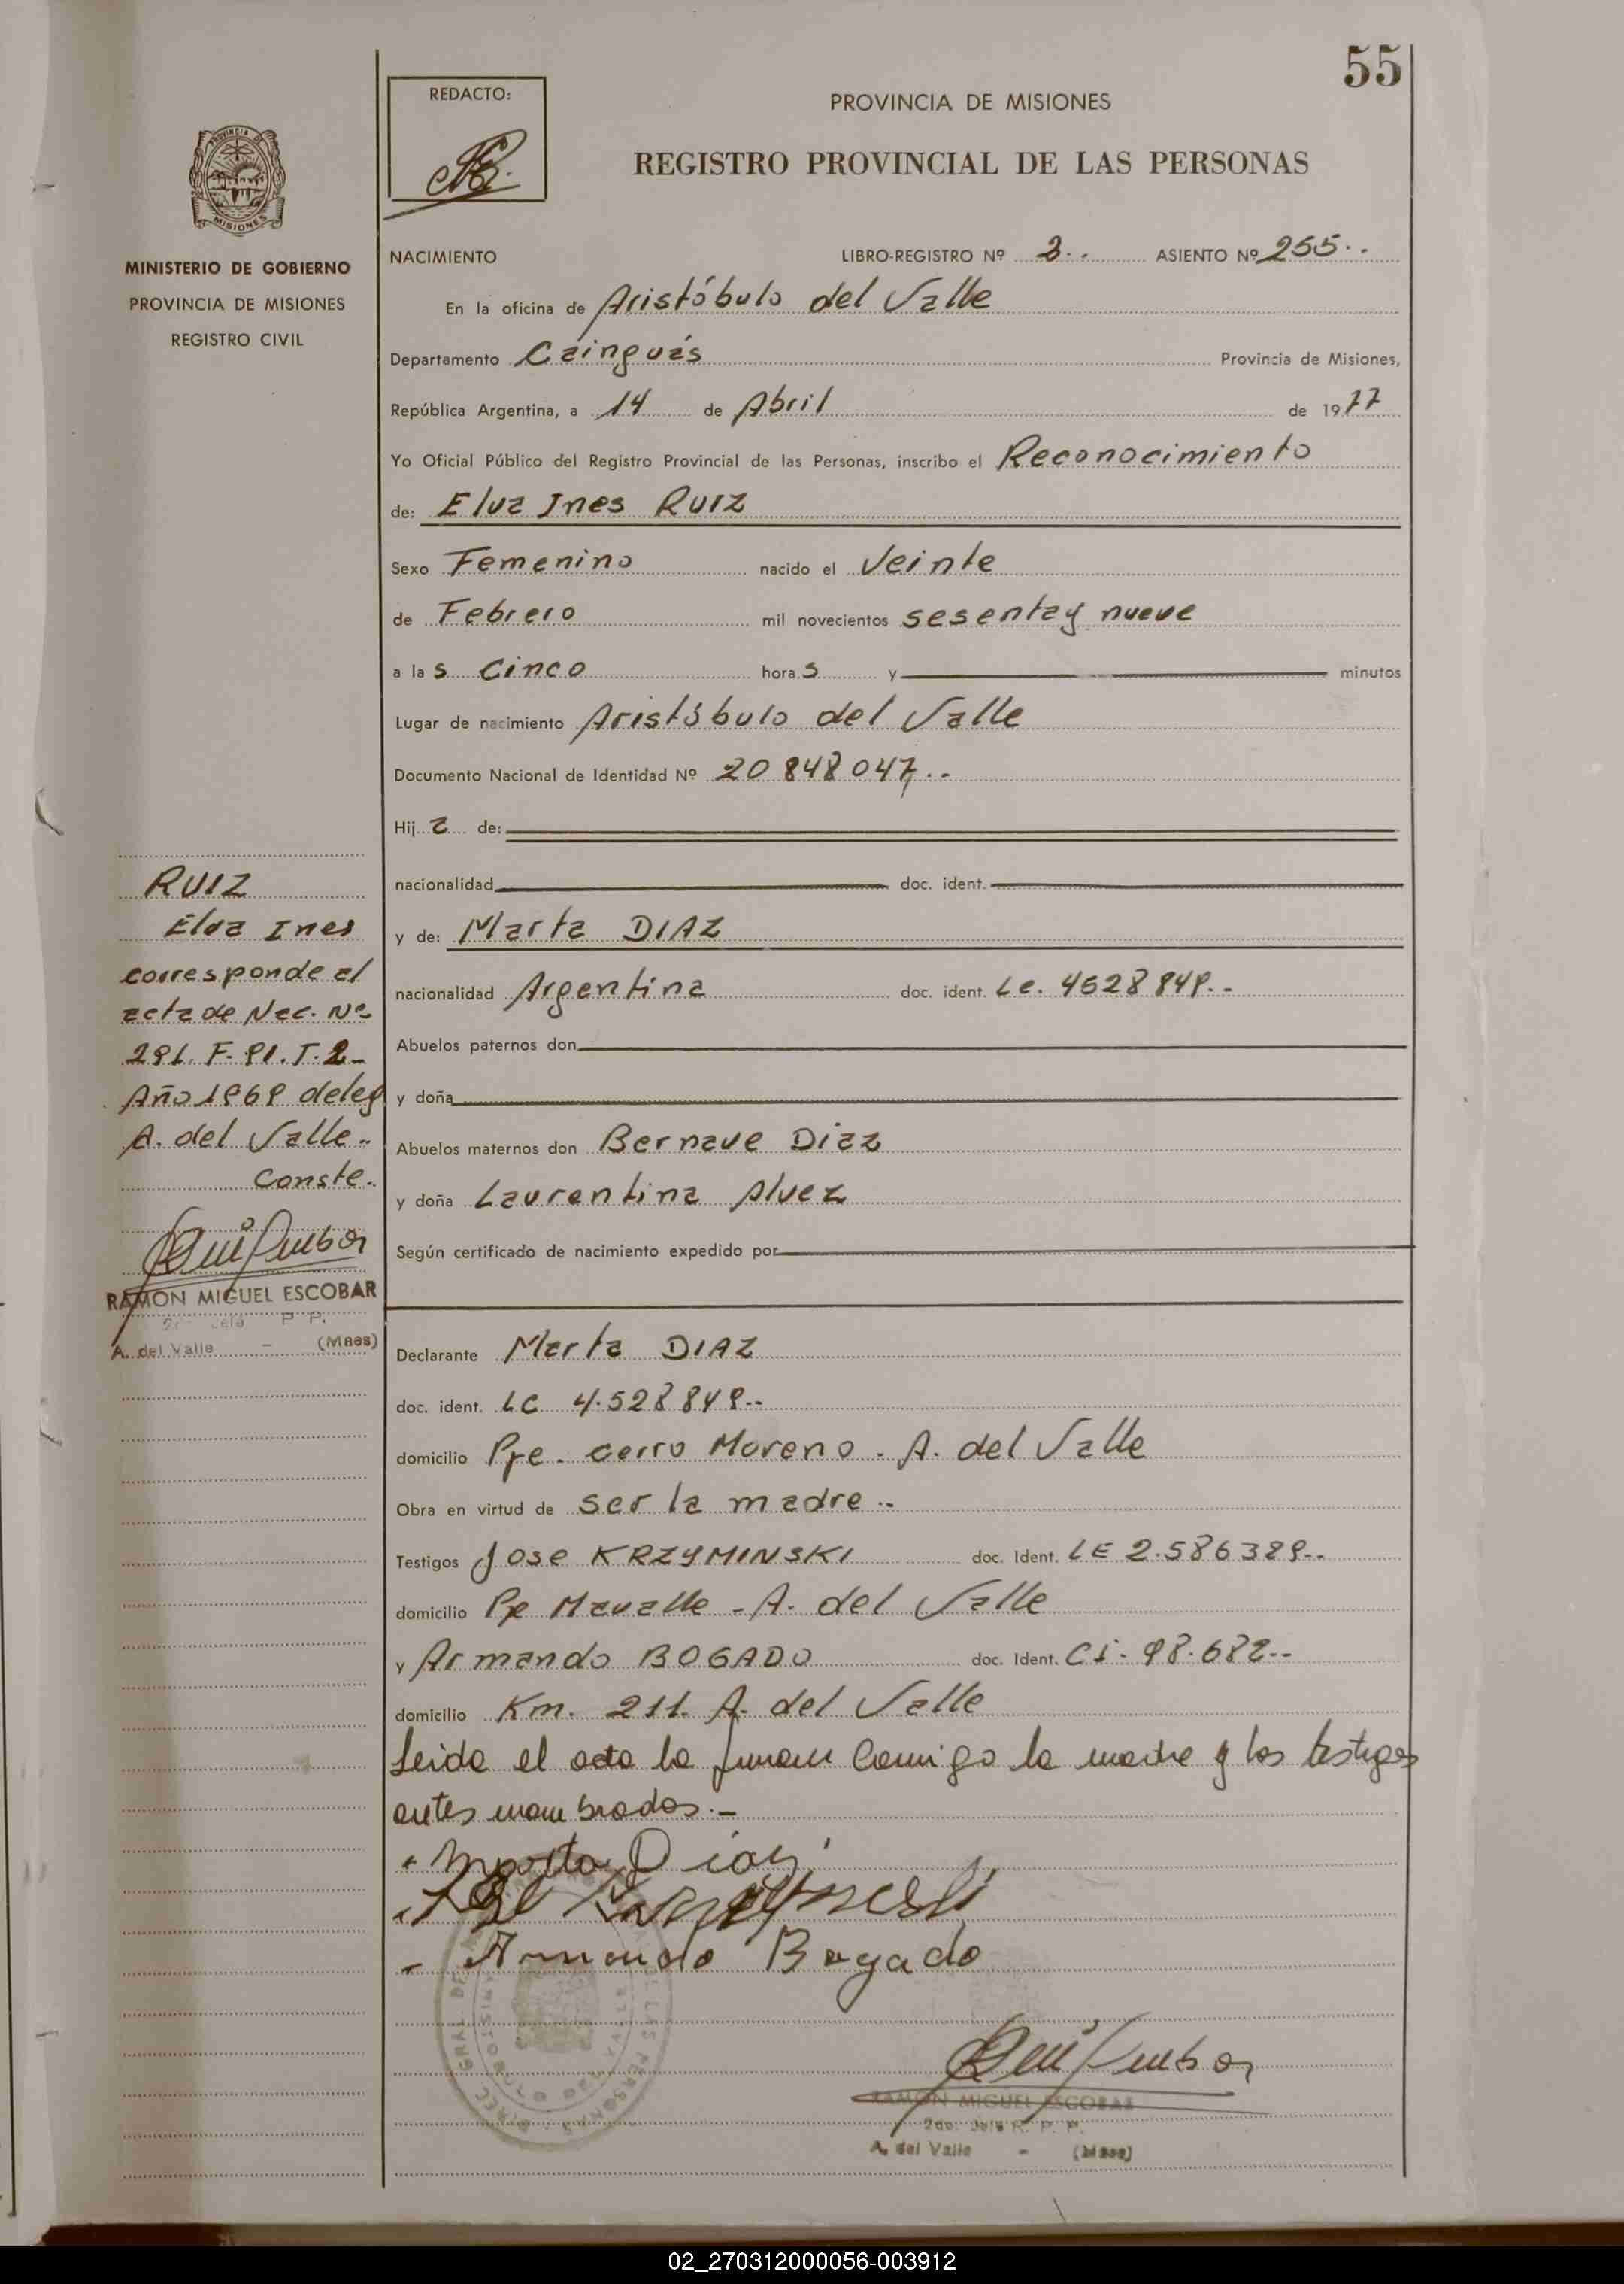 55
REDACTO:
PROVINCIA DE MISIONES
REGISTRO PROVINCIAL DE LAS PERSONAS
PROVINCIA DE
MISIONES
MINISTERIO DE GOBIERNO
PROVINCIA DE MISIONES
REGISTRO CIVIL
NACIMIENTO LIBRO-REGISTRO Nº 2.. ASIENTO Nº 255..
En la oficina de Aristóbulo del Valle
Departamento Cainguás Provincia de Misiones,
República Argentina, a 14 de Abril de 1977
Yo Oficial Público del Registro Provincial de las Personas, inscribo el Reconocimiento
de: Elva Ines RUIZ
Sexo Femenino nacido el Veinte
de Febrero mil novecientos sesenta y nueve
a las cinco horas y minutos
Lugar de nacimiento Aristóbulo del Valle
Documento Nacional de Identidad Nº 20 848 047..
Hija de:
nacionalidad doc. ident.
y de: Marta DIAZ
nacionalidad Argentina doc. ident. Lc. 4528849..
Abuelos paternos don
y doña
Abuelos maternos don Bernave Diaz
y doña Laurentina Alvez
Según certificado de nacimiento expedido por
RUIZ
Elva Ines
corresponde al
acta de Nac. Nº
291. F- 91. T. 2-
Año 1969 deleg
A. del Valle..
Conste..
RAMON MIGUEL ESCOBAR
A. del Valle - (Mnes)
Declarante Marta DIAZ
doc. ident. LC 4.528849..
domicilio Pje. cerro Moreno - A. del Valle
Obra en virtud de ser la madre..
Testigos Jose KRZYMINSKI doc. Ident. LE 2.586389..
domicilio Pje Mavalle - A. del Valle
y Armando BOGADO doc. Ident. CI - 98.682..
domicilio Km. 211. A. del Valle
Leida el acta la firman Conmigo la madre y los testigos
antes nombrados.-
Marta Diaz
Armando Bogado
RAMON MIGUEL ESCOBAR
2do. Jefe R. P. P.
A. del Valle - (Mnes)
02_270312000056-003912